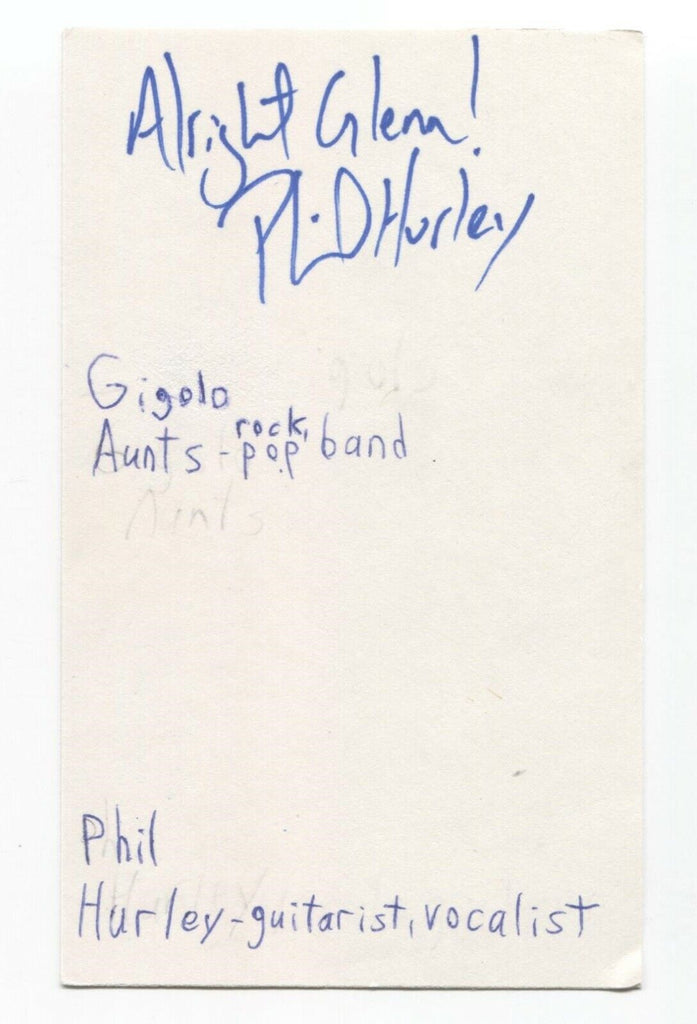 Alright Glenn!
Phil Hurley
Gigolo
rock,
Aunts - pop band
Aunts
Phil
Hurley - guitarist, vocalist